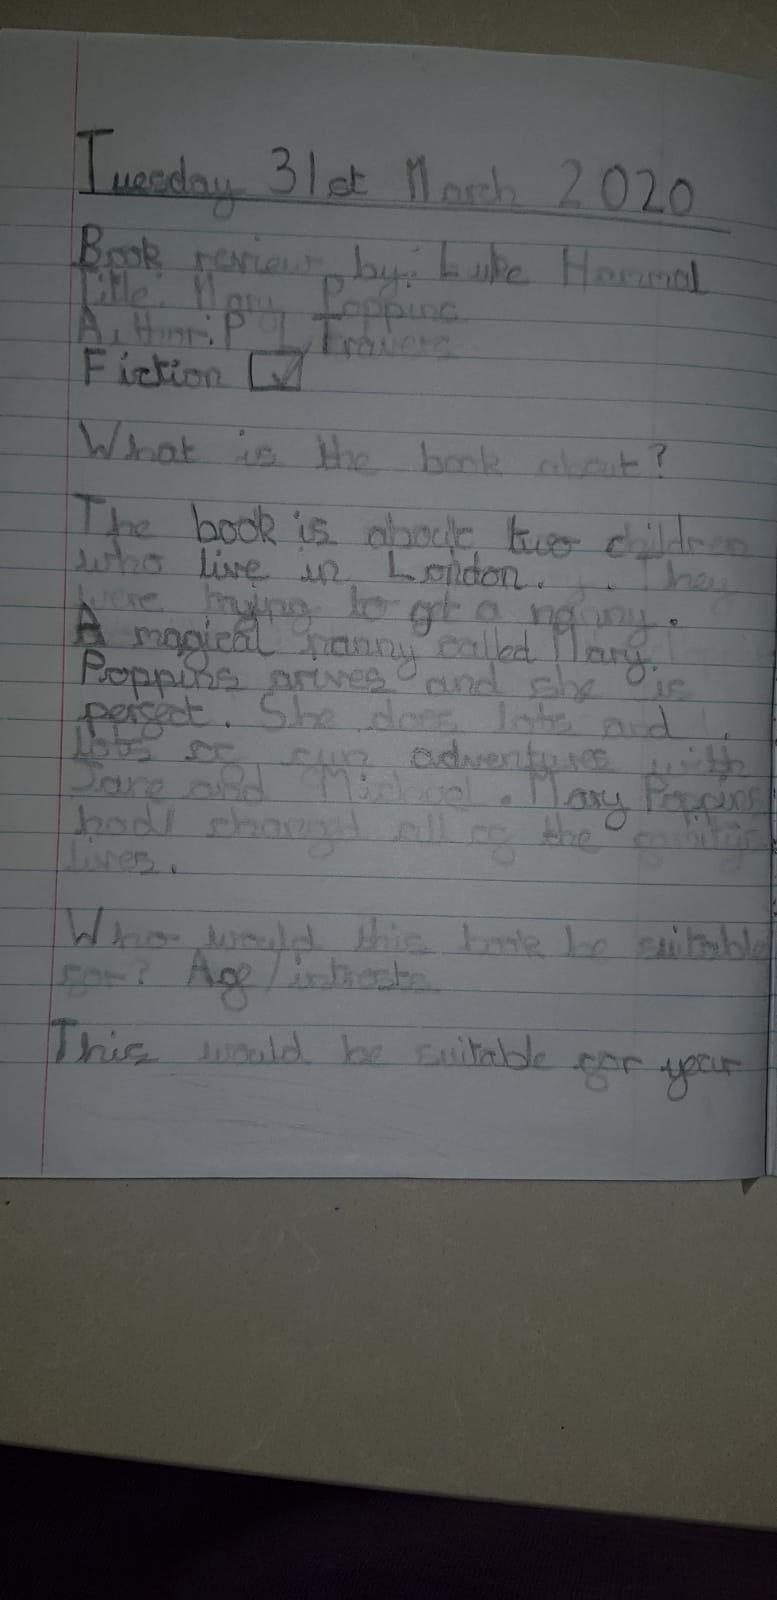 Tuesday 31st March 2020
Book review by: Luke Hammal
Title: Mary Poppins
Author: P L Travers
Fiction
What is the book about?
The book is about two children
who live in London. They
were trying to get a nanny.
A magical nanny called Mary
Poppins arives and she is
perfect. She does lots and
lots of fun adventures with
Jane and Michael. Mary Poppins
had changed all of the family's
lives.
Who would this book be suitable
for? Age/intrests
This would be suitable for year